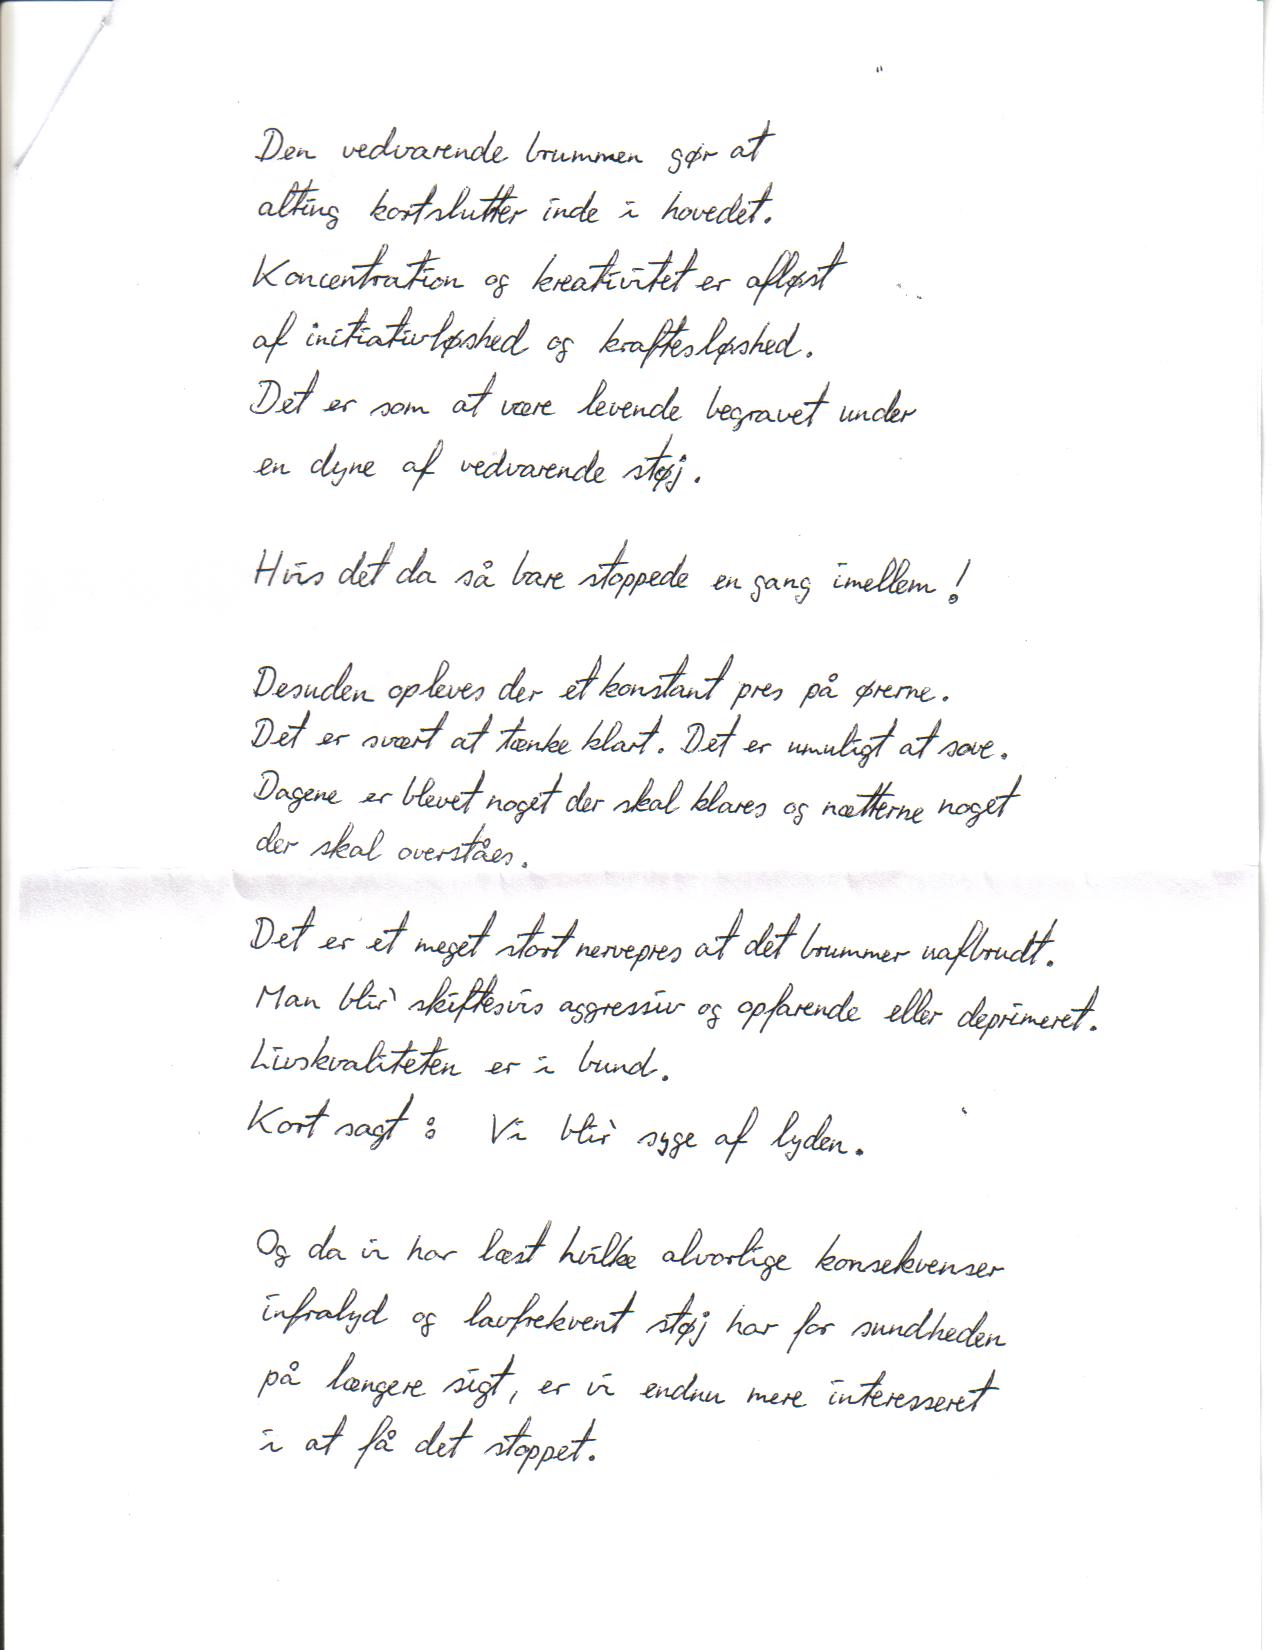 Den vedvarende brummen gør at
alting kortslutter inde i hovedet.
Koncentration og kreativitet er afløst
af initiativløshed og kraftesløshed.
Det er som at være levende begravet under
en dyne af vedvarende støj.
Hvis det da så bare stoppede en gang imellem!
Desuden opleves der et konstant pres på ørerne.
Det er svært at tænke klart. Det er umuligt at sove.
Dagene er blevet noget der skal klares og nætterne noget
der skal overståes.
Det er et meget stort nervepres at det brummer uafbrudt.
Man blir' skiftesvis aggressiv og opfarende eller deprimeret.
Livskvaliteten er i bund.
Kort sagt: Vi blir' syge af lyden.
Og da vi har læst hvilke alvorlige konsekvenser
infralyd og lavfrekvent støj har for sundheden
på længere sigt, er vi endnu mere interesseret
i at få det stoppet.